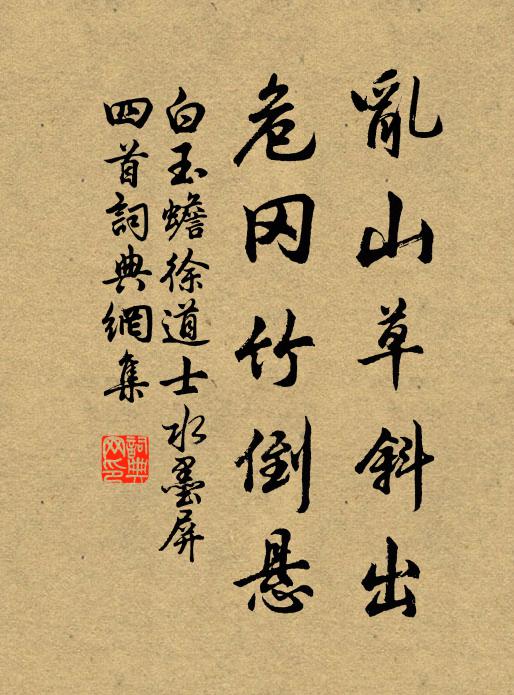 亂山草斜出
危冈竹倒懸
白玉蟾徐道士水墨屏
四首詞典網集
詞典
网印